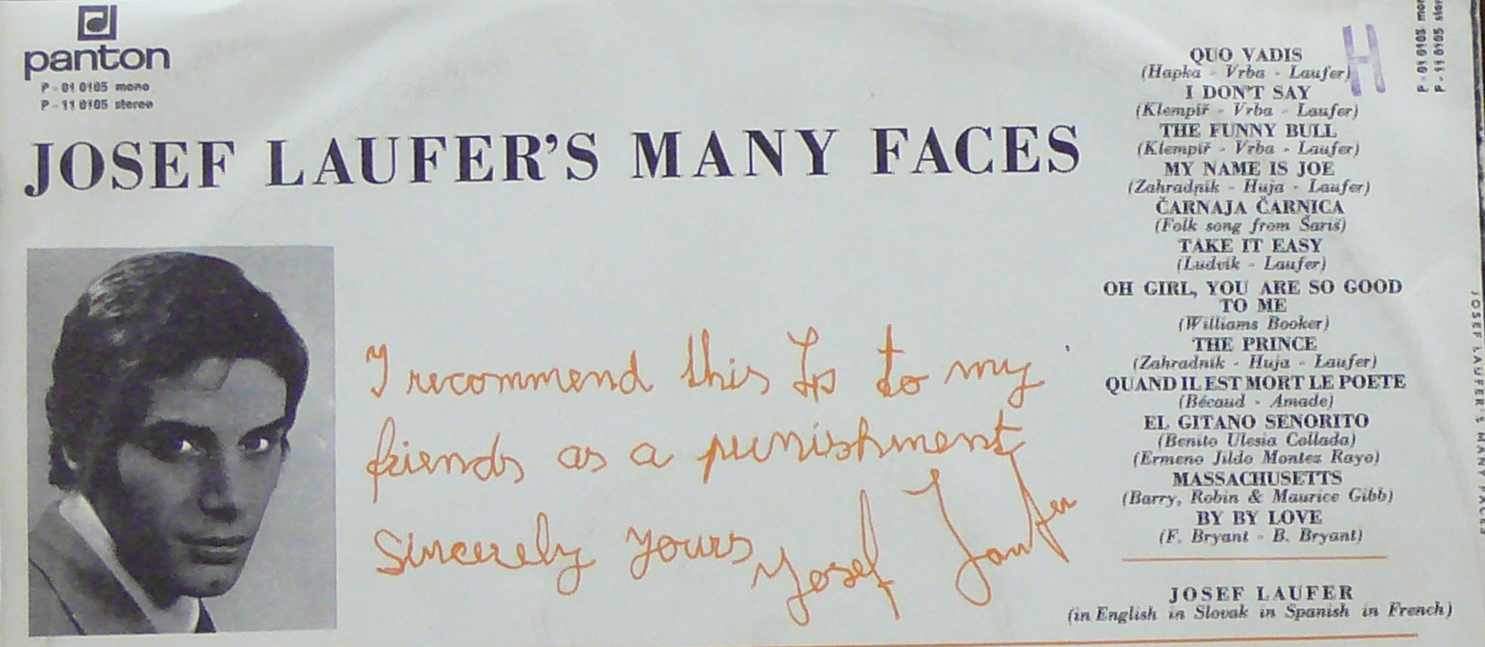 panton
P - 01 0105 mono
P - 11 0105 stereo
JOSEF LAUFER'S MANY FACES
I recommend this Lp to my
friends as a punishment
Sincerely yours Josef Laufer
QUO VADIS
(Hapka - Vrba - Laufer)
H
I DON'T SAY
(Klempíř - Vrba - Laufer)
THE FUNNY BULL
(Klempíř - Vrba - Laufer)
MY NAME IS JOE
(Zahradník - Huja - Laufer)
ČARNAJA ČARNICA
(Folk song from Šariš)
TAKE IT EASY
(Ludvík - Laufer)
OH GIRL, YOU ARE SO GOOD
TO ME
(Williams Booker)
THE PRINCE
(Zahradník - Huja - Laufer)
QUAND IL EST MORT LE POETE
(Bécaud - Amade)
EL GITANO SENORITO
(Benito Ulesia Collada)
(Ermeno Jildo Montez Rayo)
MASSACHUSETTS
(Barry, Robin & Maurice Gibb)
BY BY LOVE
(F. Bryant - B. Bryant)
JOSEF LAUFER
(in English in Slovak in Spanish in French)
P - 01 0105 mon
P - 11 0105 ster
JOSEF LAUFER'S MANY FACES